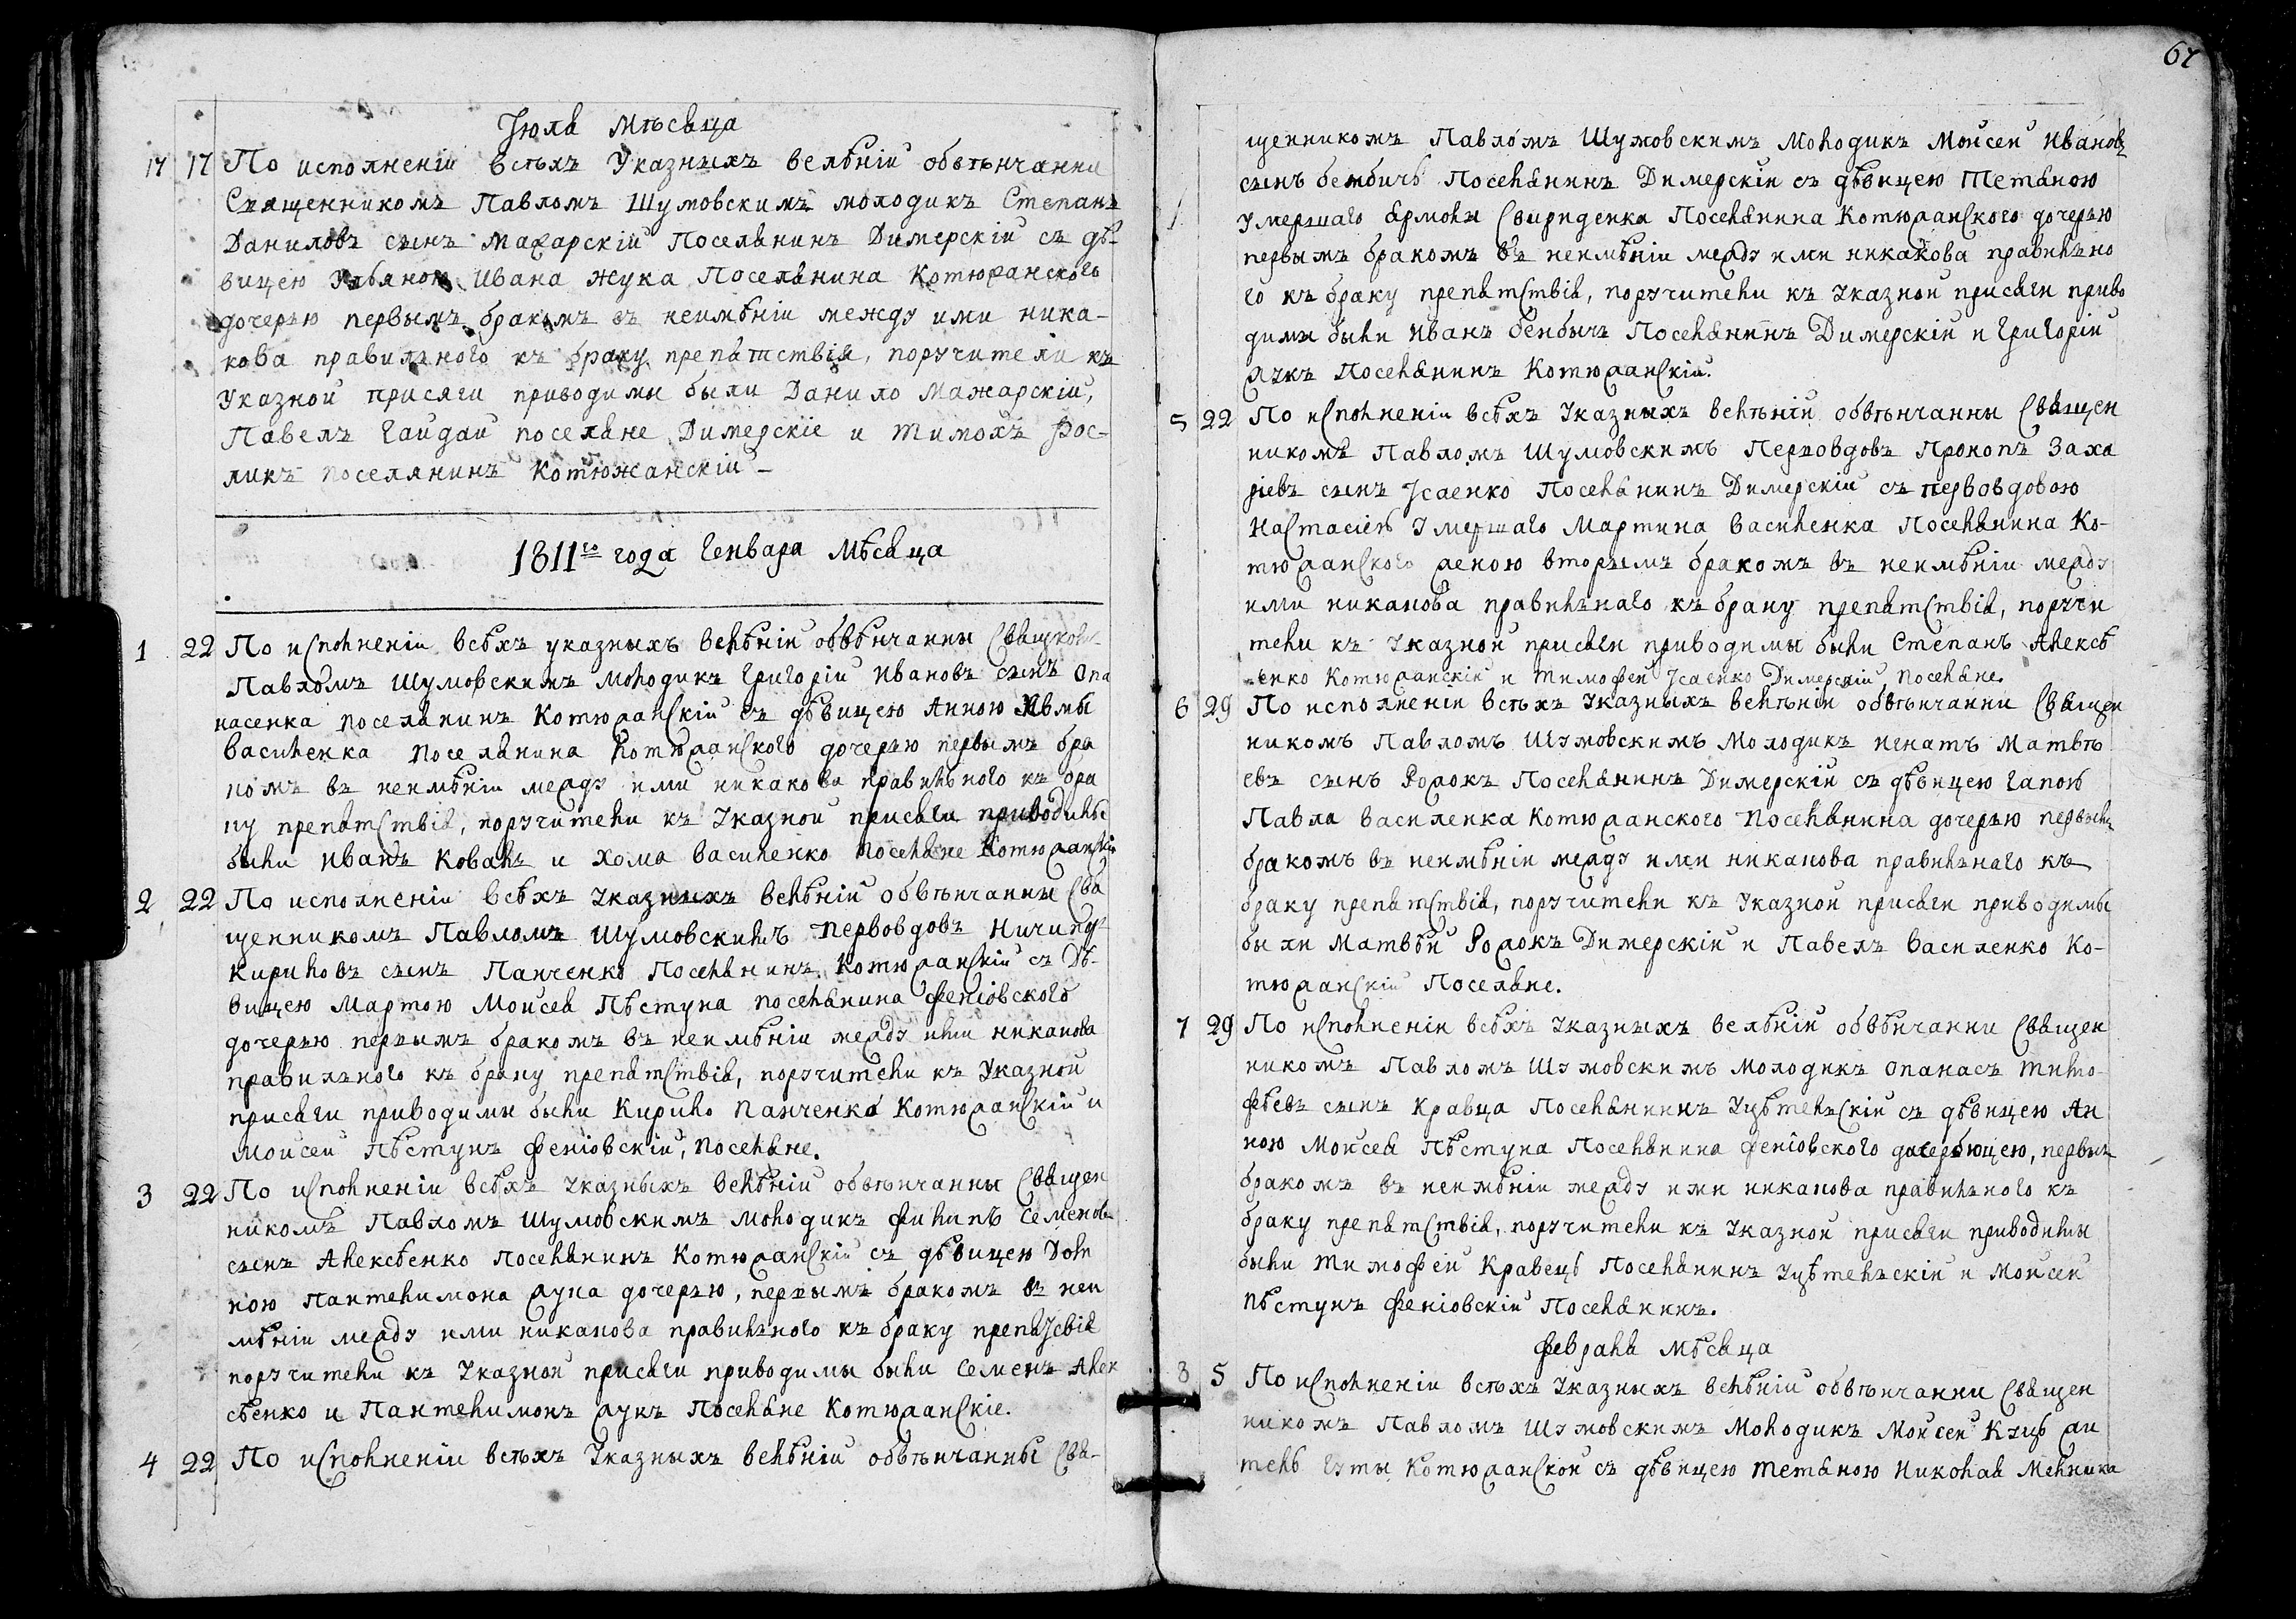 67
Июля Мѣсяца
17 17 По исполненіи всѣхъ Указныхъ велѣній обвѣнчанни
Священникомъ Павломъ Шумовскимъ молодикъ Степанъ
Даниловъ сынъ Мажарскій Поселянинъ Димерскій съ дѣ-
вицею Ульяною Ивана Жука Поселянина Котюжанского
дочерью первымъ бракомъ въ неимѣніи между ими ника-
кова правильного къ браку препятствія, поручители къ
Указной присяги приводимы были Данило Мажарскій,
Павелъ Гайдай поселяне Димерскіе и Тимохъ Рос-
ликъ поселянинъ Котюжанскій -
1811го года Генваря Мѣсяца
1 22 По исполненіи всѣхъ указныхъ велѣній обвѣнчанны
Павломъ Шумовскимъ молодикъ Григорій Ивановъ сынъ Опа
насенка поселянинъ Котюжанскій съ дѣвицею Анною
Василенка Поселянина Котюжанского дочерью первымъ бра
комъ въ неимѣніи между ими никакова правильного къ бра
ку препятствія, поручители къ Указной присяги приводимы
были Иванъ Коваль и Хома Василенко Поселяне Котюжанскіи
2 22 По исполненіи всѣхъ Указныхъ велѣній обвѣнчанны Свя
щенникомъ Павломъ Шумовскимъ Первовдовъ
Кириловъ сынъ Панченко Поселянинъ Котюжанскій съ Дѣ-
вицею Мартою Моисея Пѣстуна поселянина Феніовского
дочерью первымъ бракомъ въ неимѣніи между ими никакова
правильного къ браку препятствія, поручители къ Указной
присяги приводимы были Кирило Панченко Котюжанскій и
Моисей Пѣстунъ Феніовскій, поселяне.
3 22 По исполненіи всѣхъ Указныхъ велѣній обвѣнчанны Священ
никомъ Павломъ Шумовскимъ молодикъ Филипъ Семеновъ
сынъ Алексѣенко Поселянинъ Котюжанскій съ дѣвицею Дом
ною Пантелимона Жука дочерью, первымъ бракомъ въ неи
мѣніи между ими никакова правильного къ браку препятствія
поручители къ Указной присяги приводимы были Семенъ Алек
сѣенко и Пантелимонъ Жукъ Поселяне Котюжанскіе.
4 22 По исполненіи всѣхъ Указныхъ велѣній обвѣнчанны Свя-
щенникомъ Павломъ Шумовскимъ Молодикъ Моисей Ивановъ
сынъ Бембичь Поселянинъ Димерскіи съ дѣвицею Тетяною
умершаго Ярмолы Свириденка Поселянина Котюжанского дочерью
первымъ бракомъ въ неимѣніи между ими никакова правильно
го къ браку препятствія, поручители къ Указной присяги приво
димы были Иванъ Бенбичъ Поселянинъ Димерскій и Григорій
Жукъ Поселянинъ Котюжанскій.
5 22 По исполненіи всѣхъ Указныхъ велѣній обвѣнчанны Священ
никомъ Павломъ Шумовскимъ Первовдовъ Прокопъ Заха
ріевъ сынъ Исаенко Поселянинъ Димерскій съ первовдовою
Настасіею Умершаго Мартина Василенка Поселянина Ко-
тюжанского женою вторымъ бракомъ въ неимѣніи между
ими никакова правильнаго къ браку препятствія, поручи
тели къ Указной присяги приводимы были Степанъ Алексѣ
енко Котюжанскій и Тимофей Исаенко Димерскій Поселяне.
6 29 По исполненіи всѣхъ Указныхъ велѣній обвѣнчанни Священ
никомъ Павломъ Шумовскимъ Молодикъ Игнатъ Матвѣ
евъ сынъ Рожокъ Поселянинъ Димерскій съ дѣвицею Гапою
Павла Василенка Котюжанского Поселянина дочерью первымъ
бракомъ въ неимѣніи между ими никакова правильнаго къ
браку препятствія, поручители къ Указной присяги приводимы
были Матвѣй Рожокъ Димерскій и Павелъ Василенко Ко-
тюжанскіи Поселяне.
7 29 По исполненіи всѣхъ Указныхъ велѣній обвѣнчанни Священ
никомъ Павломъ Шумовскимъ молодикъ Опанасъ Тимо-
фѣевъ сынъ Кравца Поселянинъ съ дѣвицею Ан
ною Моисея Пѣстуна Поселянина Феніовского первымъ
бракомъ въ неимѣніи между ими никакова правильного къ
браку препятствія, поручители къ Указной присяги приводимы
были Тимофей Кравець Поселянинъ и Моисей
Пѣстунъ Феніовскій Поселянинъ.
Февраля Мѣсяца
8 5 По исполненіи всѣхъ Указныхъ велѣній обвѣнчанни Священ
никомъ Павломъ Шумовскимъ Молодикъ Моисей жи
тель Гуты Котюжанской съ дѣвицею Тетяною Николая Мельника